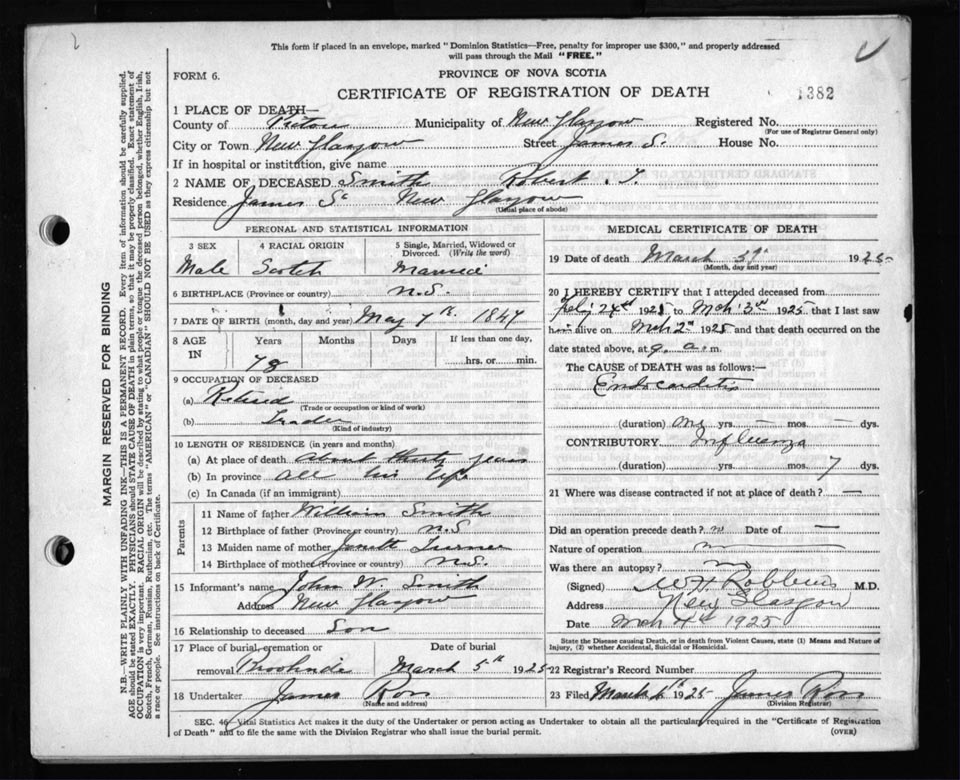 This form if placed in an envelope, marked "Dominion Statistics—Free, penalty for improper use $300," and properly addressed
will pass through the Mail "FREE."
FORM 6.
PROVINCE OF NOVA SCOTIA
CERTIFICATE OF REGISTRATION OF DEATH
1382
1 PLACE OF DEATH—
County of Pictou Municipality of New Glasgow Registered No.
(For use of Registrar General only)
City or Town New Glasgow Street James S. House No.
If in hospital or institution, give name
2 NAME OF DECEASED Smith Robert
Residence James St New Glasgow
(Usual place of abode)
PERSONAL AND STATISTICAL INFORMATION
3 SEX 4 RACIAL ORIGIN 5 Single, Married, Widowed or Divorced. (Write the word)
Male Scotch Married
6 BIRTHPLACE (Province or country) N.S.
7 DATE OF BIRTH (month, day and year) May 7th 1847
8 AGE IN Years Months Days If less than one day,
78 hrs. or min.
9 OCCUPATION OF DECEASED
(a) Retired
(Trade or occupation or kind of work)
(b) Trader
(Kind of industry)
10 LENGTH OF RESIDENCE (in years and months)
(a) At place of death about thirty years
(b) In province all his life
(c) In Canada (if an immigrant)
Parents
11 Name of father William Smith
12 Birthplace of father (Province or country) N.S.
13 Maiden name of mother Turner
14 Birthplace of mother (Province or country) N.S.
15 Informant's name John W. Smith
Address New Glasgow
16 Relationship to deceased Son
17 Place of burial, cremation or removal Date of burial
March 5th 1925
18 Undertaker James
(Name and address)
MEDICAL CERTIFICATE OF DEATH
19 Date of death March 1925
(Month, day and year)
20 I HEREBY CERTIFY that I attended deceased from
24th 1925 to Mch 3rd 1925, that I last saw
him alive on Mch 2nd 1925 and that death occurred on the
date stated above, at 9. a. m.
The CAUSE OF DEATH was as follows:—
Endocarditis
(duration) yrs. — mos. — dys.
CONTRIBUTORY Influenza
(duration) yrs. mos. 7 dys.
21 Where was disease contracted if not at place of death? —
Did an operation precede death? Date of —
Nature of operation
Was there an autopsy? no
(Signed) W H Robbins M.D.
Address New Glasgow
Date Mch 4th 1925
State the Disease causing Death, or in death from Violent Causes, state (1) Means and Nature of
Injury, (2) whether Accidental, Suicidal or Homicidal.
22 Registrar's Record Number
23 Filed March 1925 James
(Division Registrar)
SEC. 46 Vital Statistics Act makes it the duty of the Undertaker or person acting as Undertaker to obtain all the particulars required in the "Certificate of Registration
of Death" and to file the same with the Division Registrar who shall issue the burial permit.
(OVER)
MARGIN RESERVED FOR BINDING
N.B.—WRITE PLAINLY WITH UNFADING INK—THIS IS A PERMANENT RECORD. Every item of information should be carefully supplied.
AGE should be stated EXACTLY. PHYSICIANS should STATE CAUSE OF DEATH in plain terms, so that it may be properly classified. Exact statement of
OCCUPATION is very important. RACIAL ORIGIN will be described by stating to what people or tongue the deceased person belonged, whether English, Irish,
Scotch, French, German, Russian, Ruthenian, etc. The terms "AMERICAN" or "CANADIAN" SHOULD NOT BE USED as they express citizenship but not
a race or people. See instructions on back of Certificate.